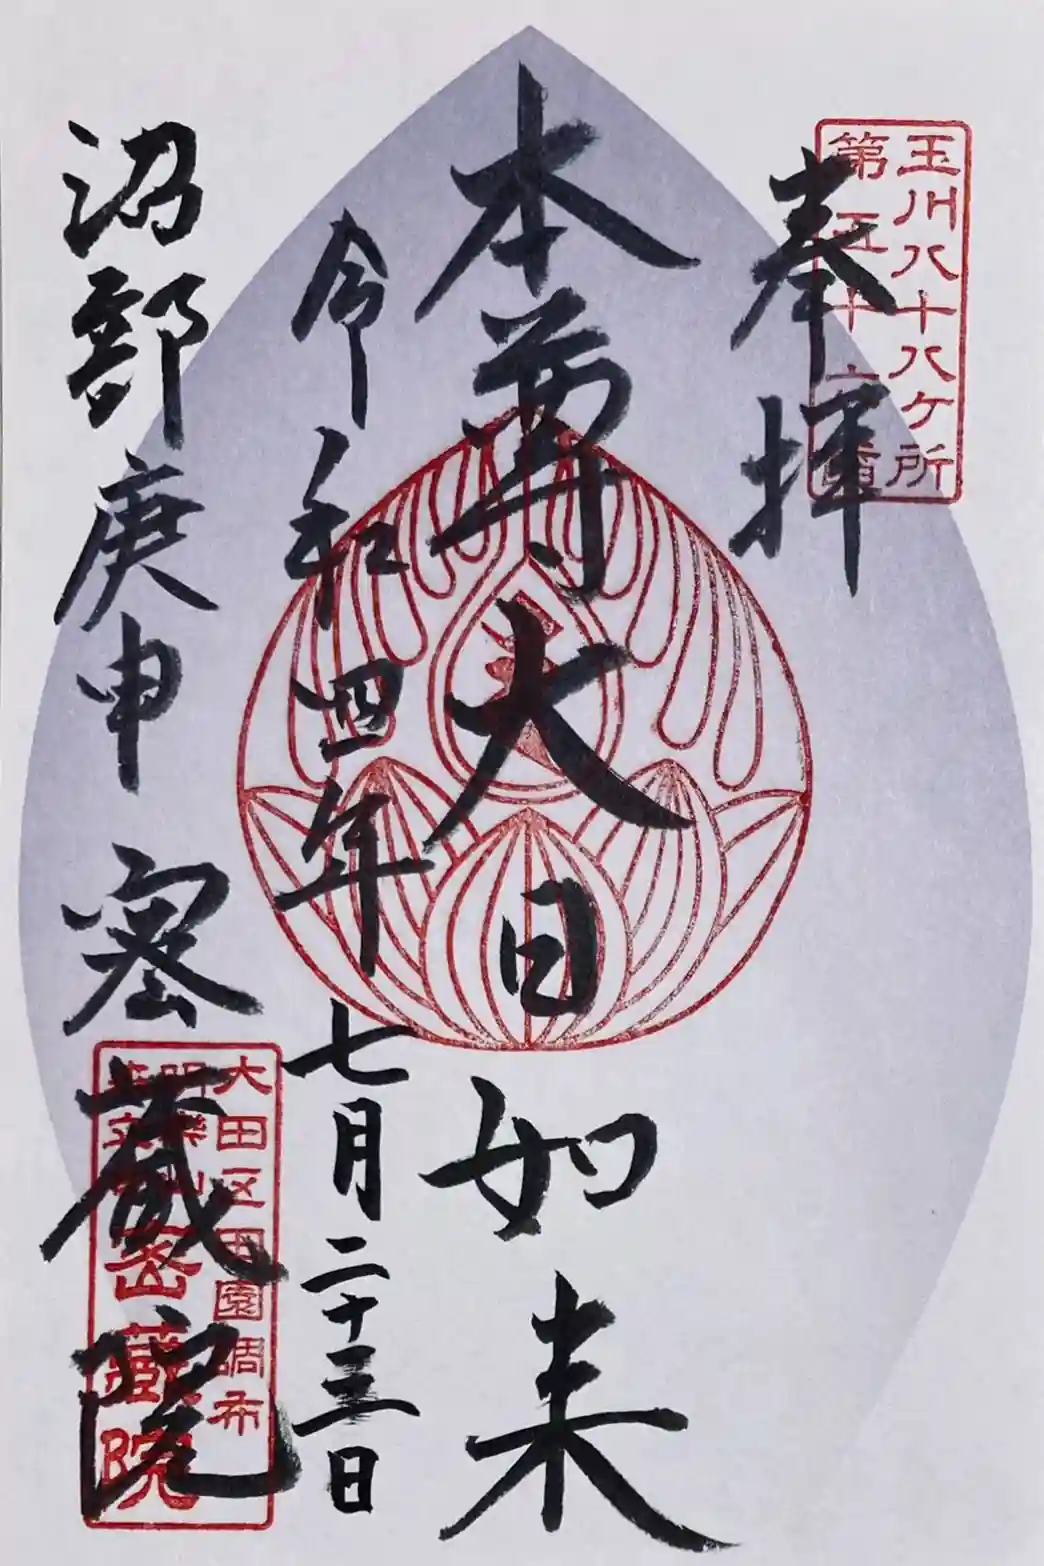 玉川八十八ケ所
第五十
奉拝
本尊大日如来
令和四年七月二十三日
沼部庚申 密蔵院
大田区田園調布
密蔵院